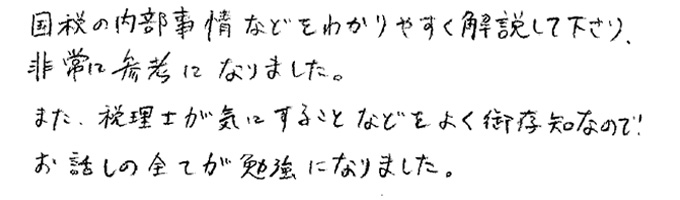 国税の内部事情などをわかりやすく解説して下さり、
非常に参考になりました。
また、税理士が気にすることなどをよく御存知なので!
お話しの全てが勉強になりました。